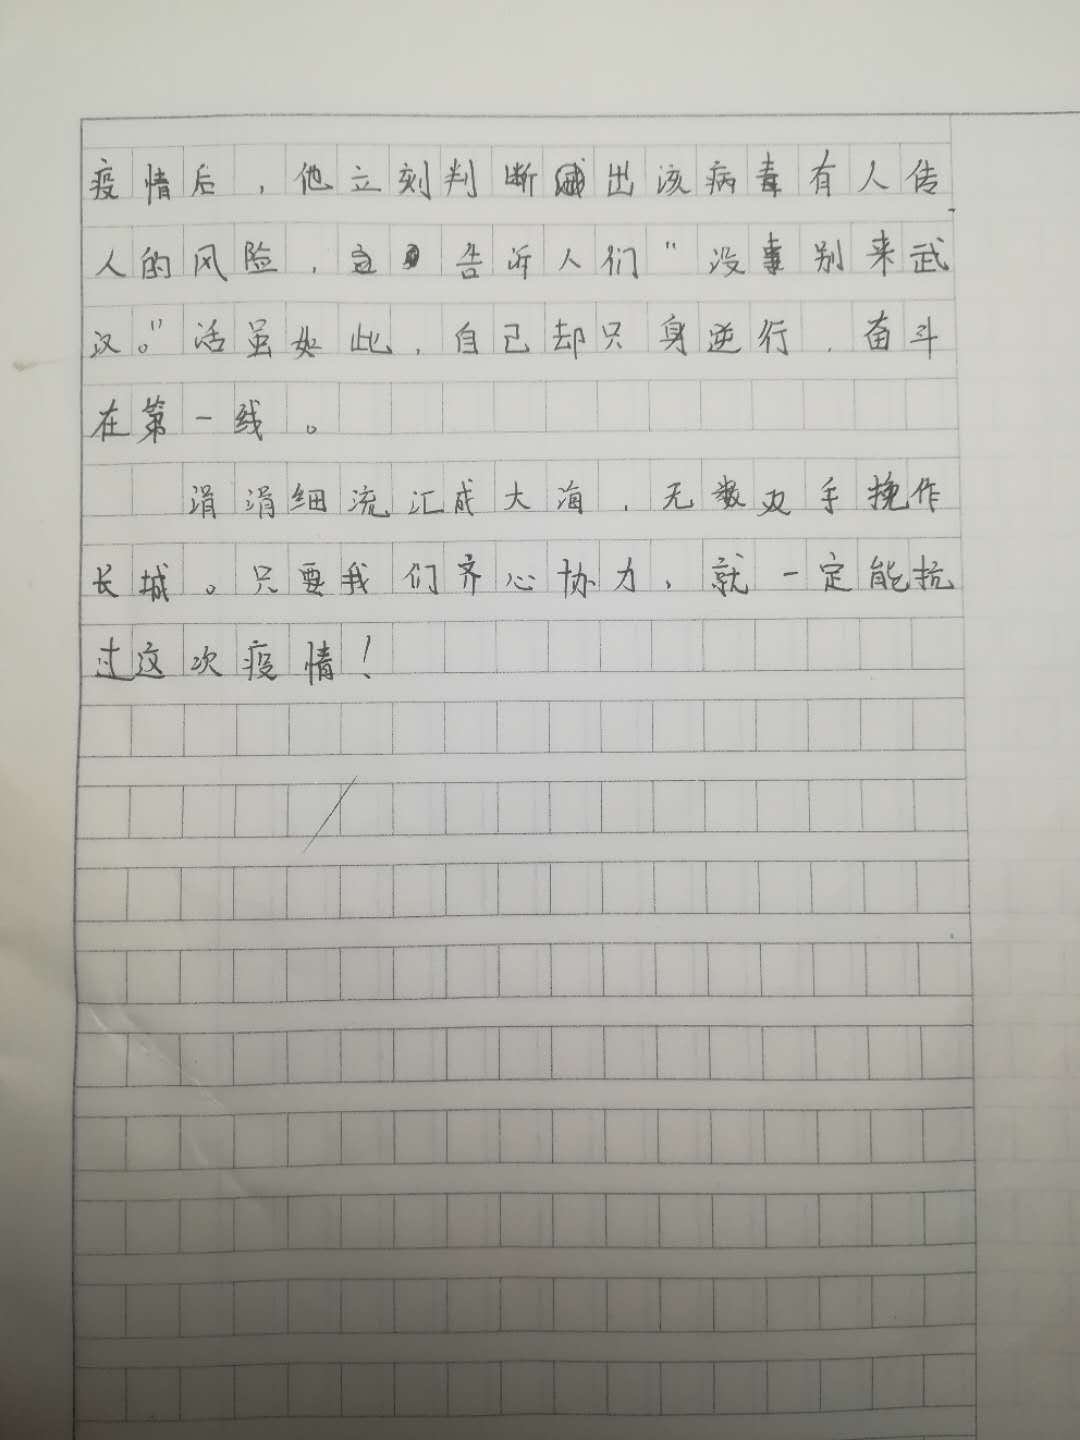 疫情后，他立刻判断出该病毒有人传
人的风险，立告诉人们“没事别来武
汉。”话虽如此，自己却只身逆行，奋斗
在第一线。
涓涓细流汇成大海，无数双手挽作
长城。只要我们齐心协力，就一定能抗
过这次疫情！